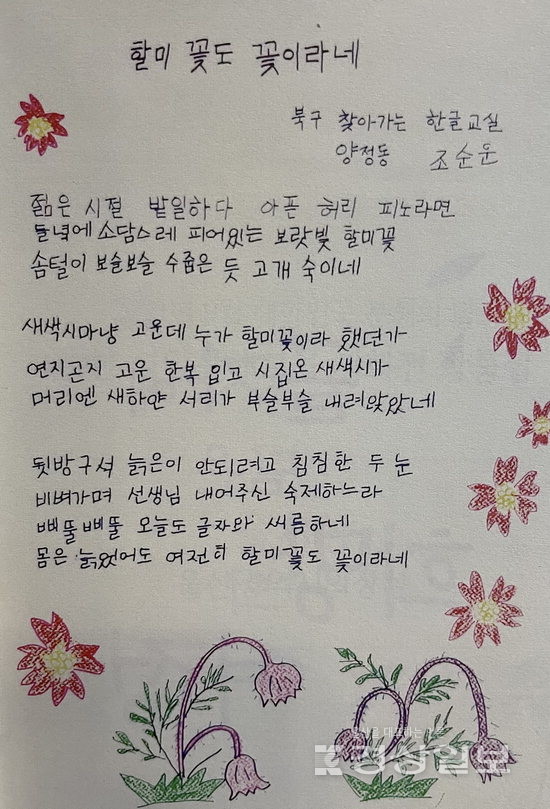 할미 꽃도 꽃이라네
북구 찾아가는 한글교실
양정동 조순운
젊은 시절 밭일하다 아픈 허리 피노라면
들녘에 소담스레 피어있는 보랏빛 할미꽃
솜털이 보슬보슬 수줍은 듯 고개 숙이네
새색시마냥 고운데 누가 할미꽃이라 했던가
연지곤지 고운 한복 입고 시집온 새색시가
머리엔 새하얀 서리가 부슬부슬 내려앉았네
뒷방구석 늙은이 안되려고 침침한 두 눈
비벼가며 선생님 내어주신 숙제하느라
삐뚤삐뚤 오늘도 글자와 씨름하네
몸은 늙었어도 여전히 할미꽃도 꽃이라네
경상일보